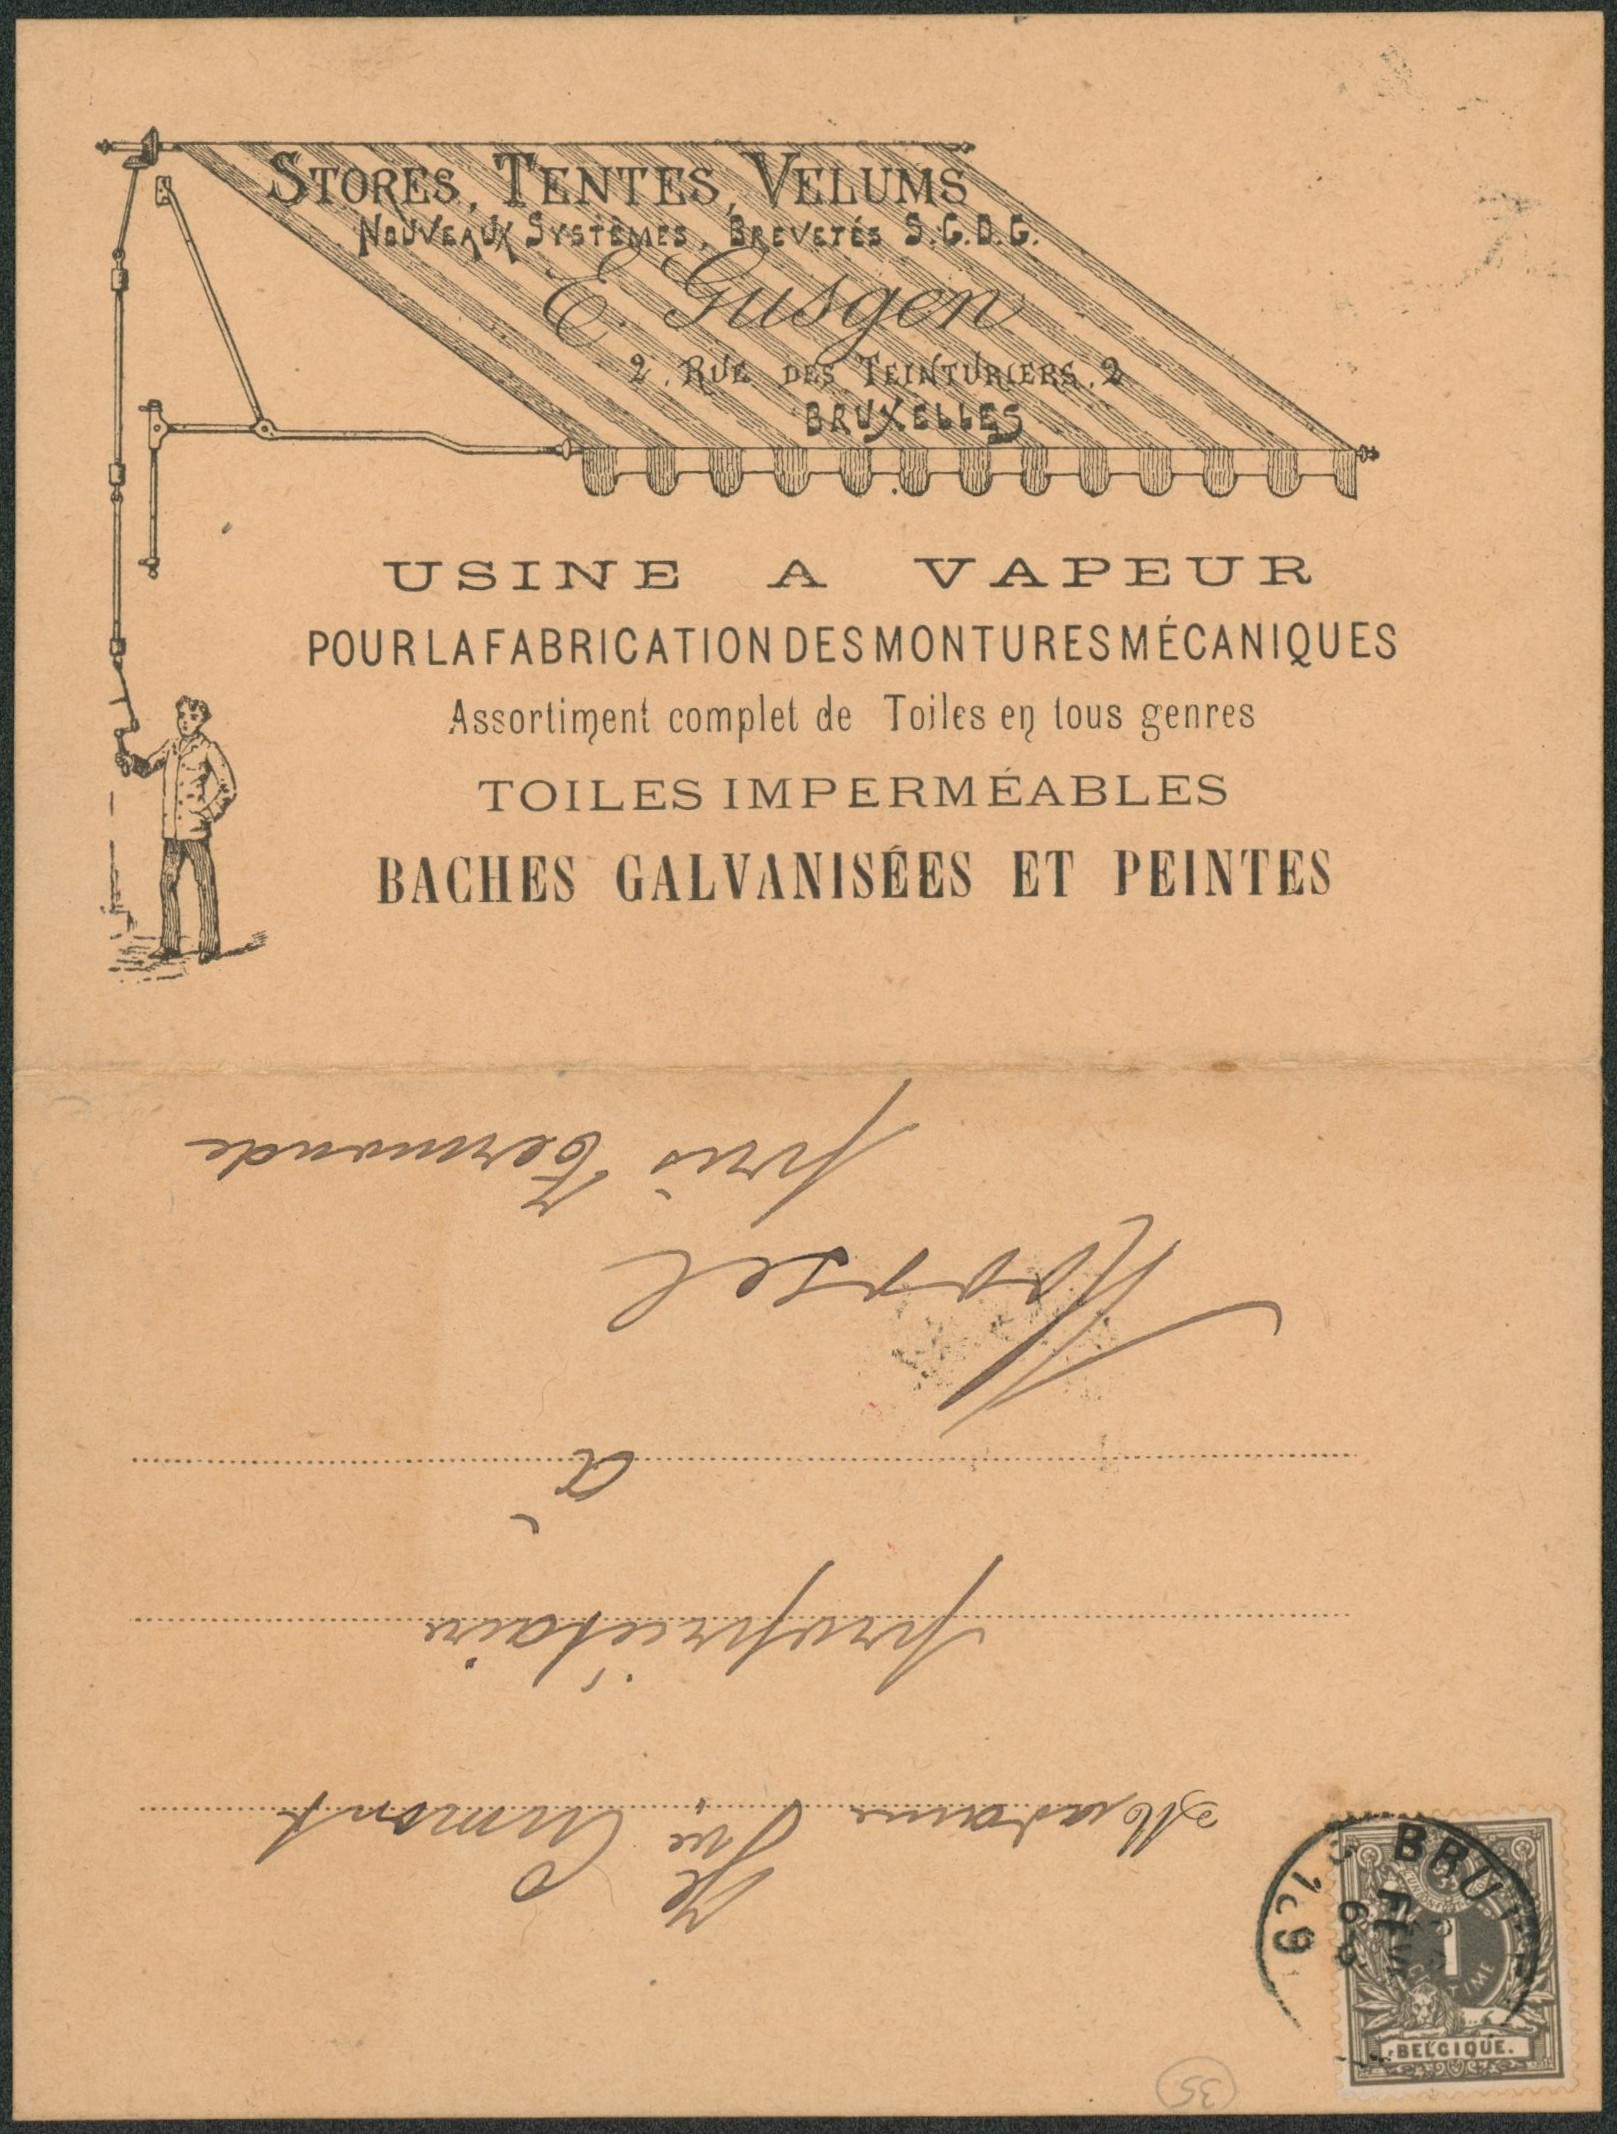 STORES, TENTES, VELUMS
NOUVEAUX SYSTÈMES, BREVETÉS S.G.D.G.
E. Gusgen
2, RUE DES TEINTURIERS, 2
BRUXELLES
USINE A VAPEUR
POUR LA FABRICATION DES MONTURES MÉCANIQUES
Assortiment complet de Toiles en tous genres
TOILES IMPERMÉABLES
BACHES GALVANISÉES ET PEINTES
Madame Vve
propriétaire
à
Moorsel
près Termonde
BRU
FEVR
1
CENTIME
BELGIQUE.
35